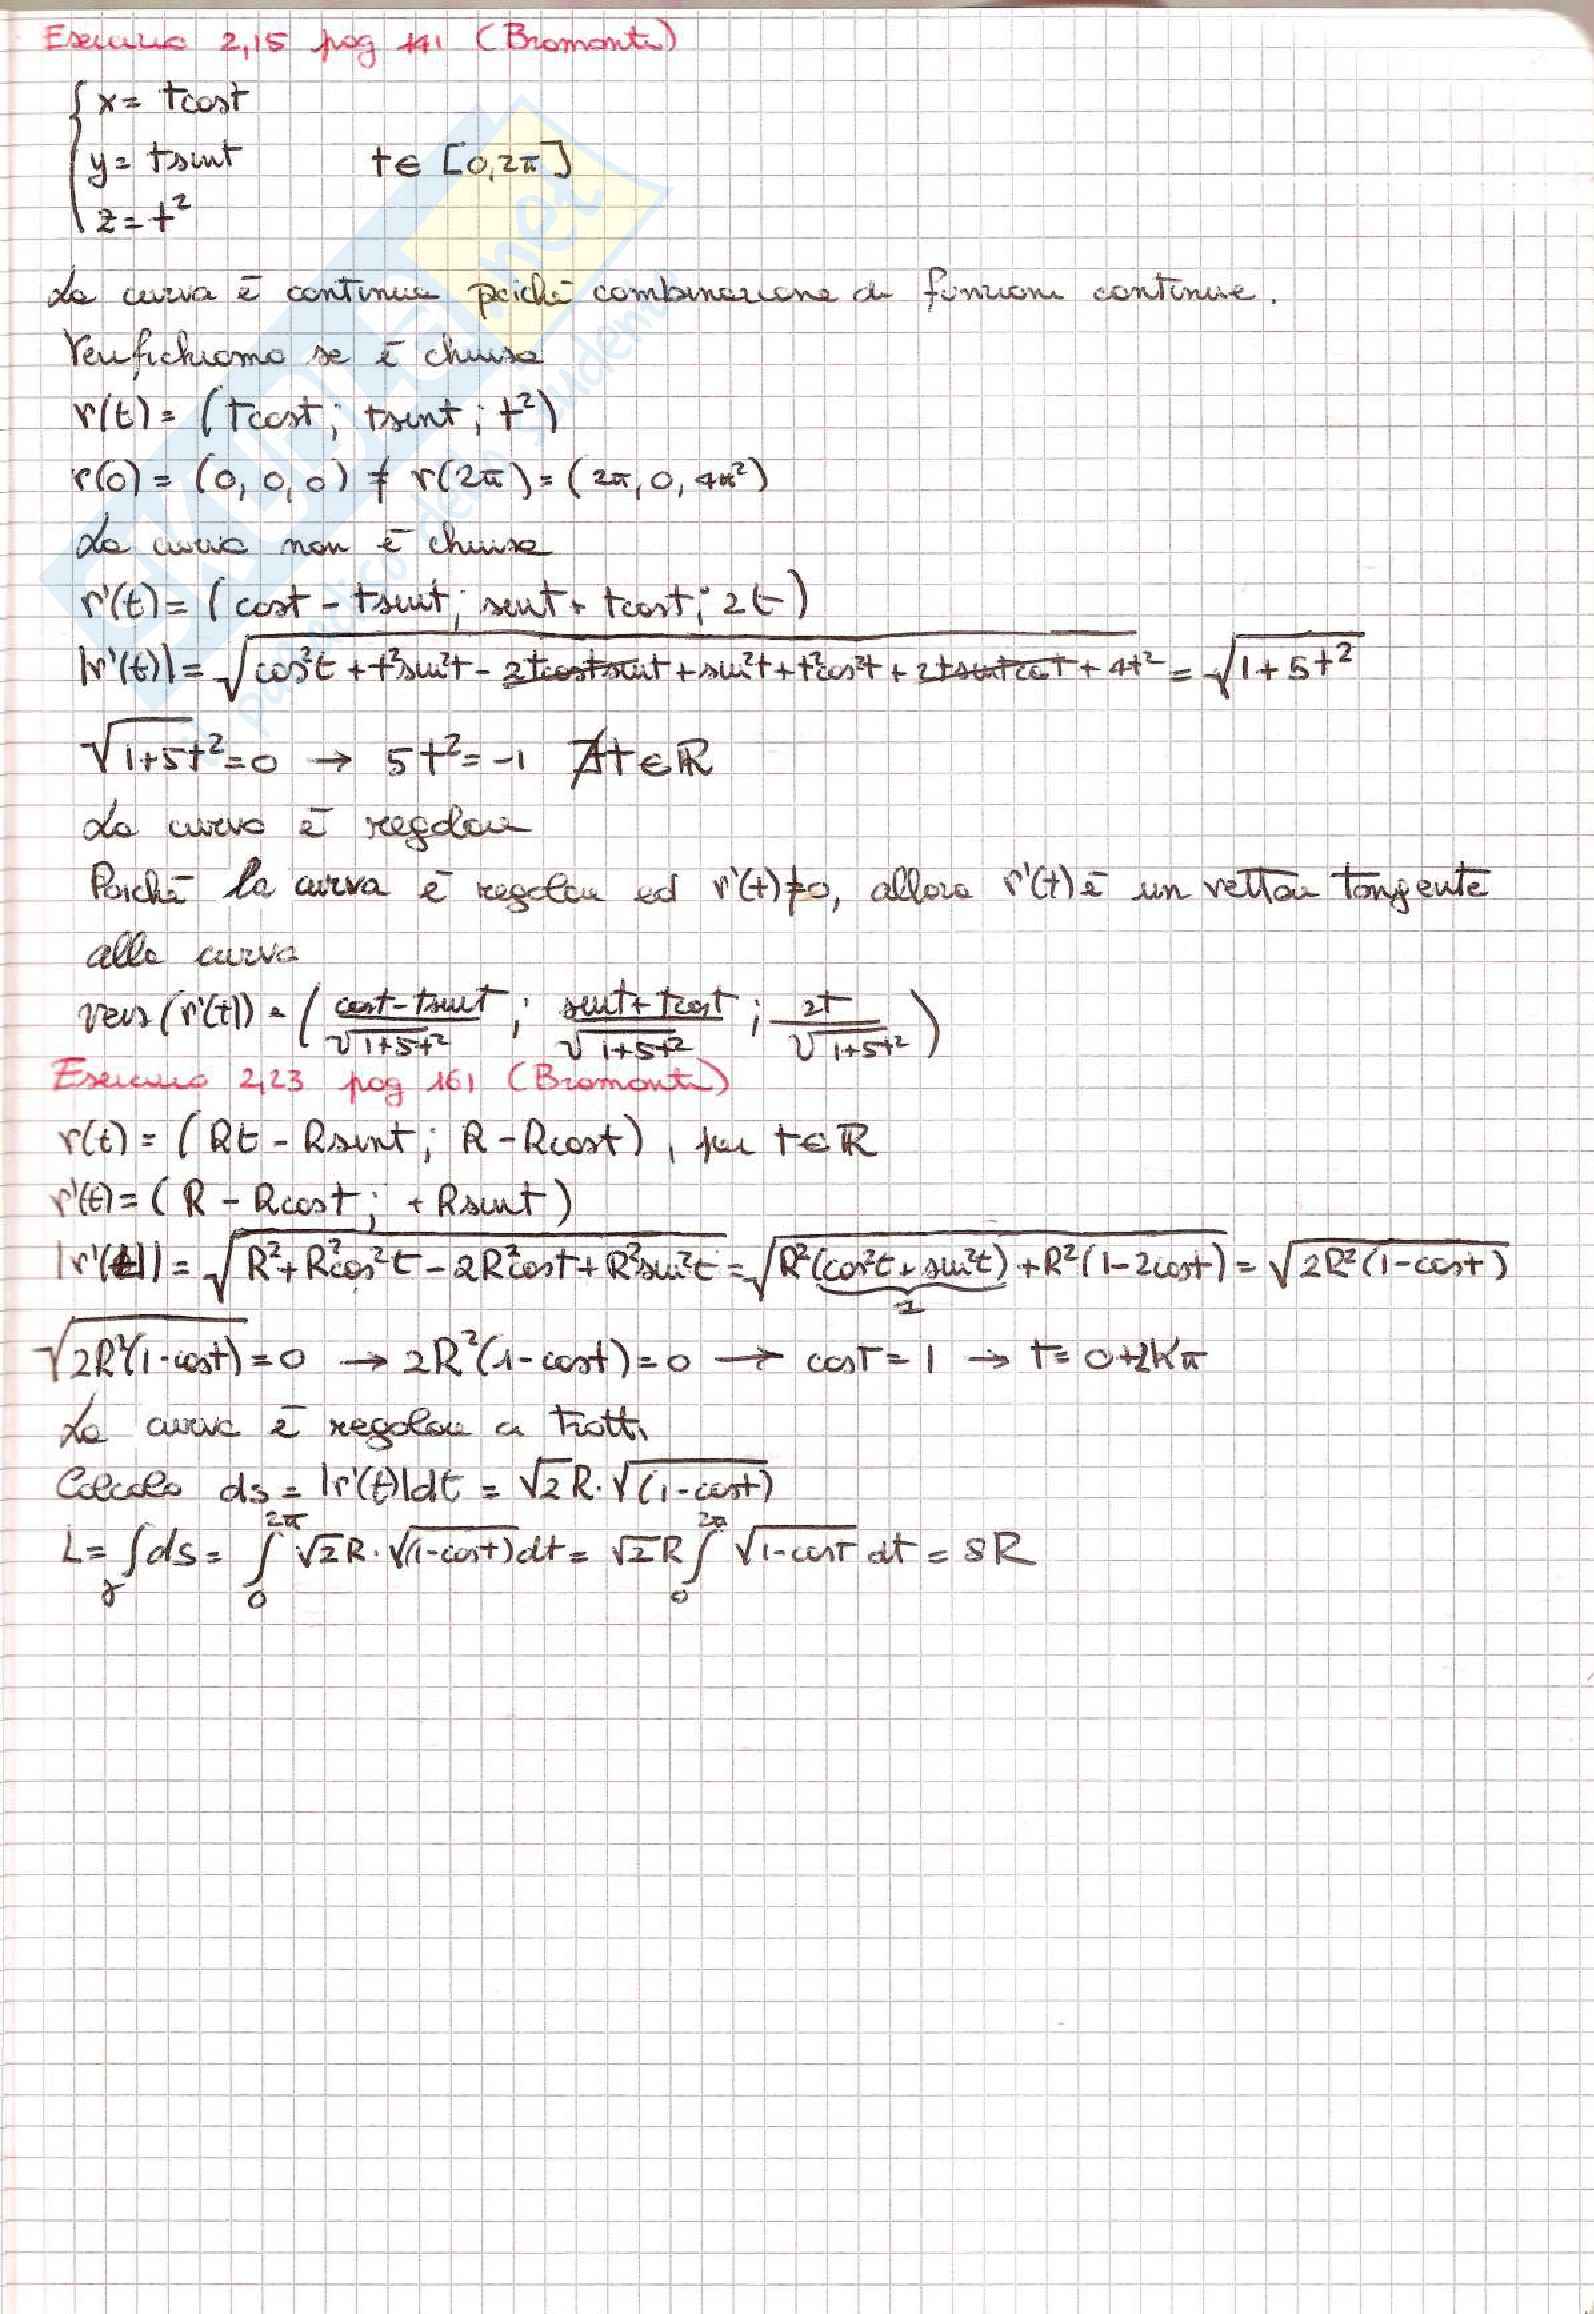 Esercizio 2,15 pag 141 (Bramanti)
x = tcost
y = tsint t ∈ [0,2π]
z = t²
La curva è continua poichè combinazione di funzioni continue.
Verifichiamo se è chiusa
r(t) = (tcost; tsint; t²)
r(0) = (0, 0, 0) ≠ r(2π) = (2π, 0, 4π²)
La curva non è chiusa
r'(t) = (cost - tsint; sint + tcost; 2t)
|r'(t)| = √(cos²t + t²sin²t - 2tcostsint + sin²t + t²cos²t + 2tsintcost + 4t²) = √(1+5t²)
√(1+5t²) = 0 → 5t² = -1 ∄t∈ℝ
La curva è regolare
Poichè la curva è regolare ed r'(t)≠0, allora r'(t) è un vettore tangente
alla curva
vers(r'(t)) = ( (cost-tsint)/√(1+5t²) ; (sint+tcost)/√(1+5t²) ; 2t/√(1+5t²) )
Esercizio 2,23 pag 161 (Bramanti)
r(t) = (Rt - Rsint; R - Rcost), per t∈ℝ
r'(t) = (R - Rcost; +Rsint)
|r'(t)| = √(R²+R²cos²t - 2R²cost + R²sin²t) = √(R²(cos²t + sin²t) + R²(1-2cost)) = √(2R²(1-cost))
1
√(2R²(1-cost)) = 0 → 2R²(1-cost) = 0 → cost = 1 → t = 0+2kπ
La curva è regolare a tratti
Calcolo ds = |r'(t)|dt = √2 R·√(1-cost)
L = ∫γ ds = ∫₀^2π √2 R·√(1-cost) dt = √2 R ∫₀^2π √(1-cost) dt = 8R